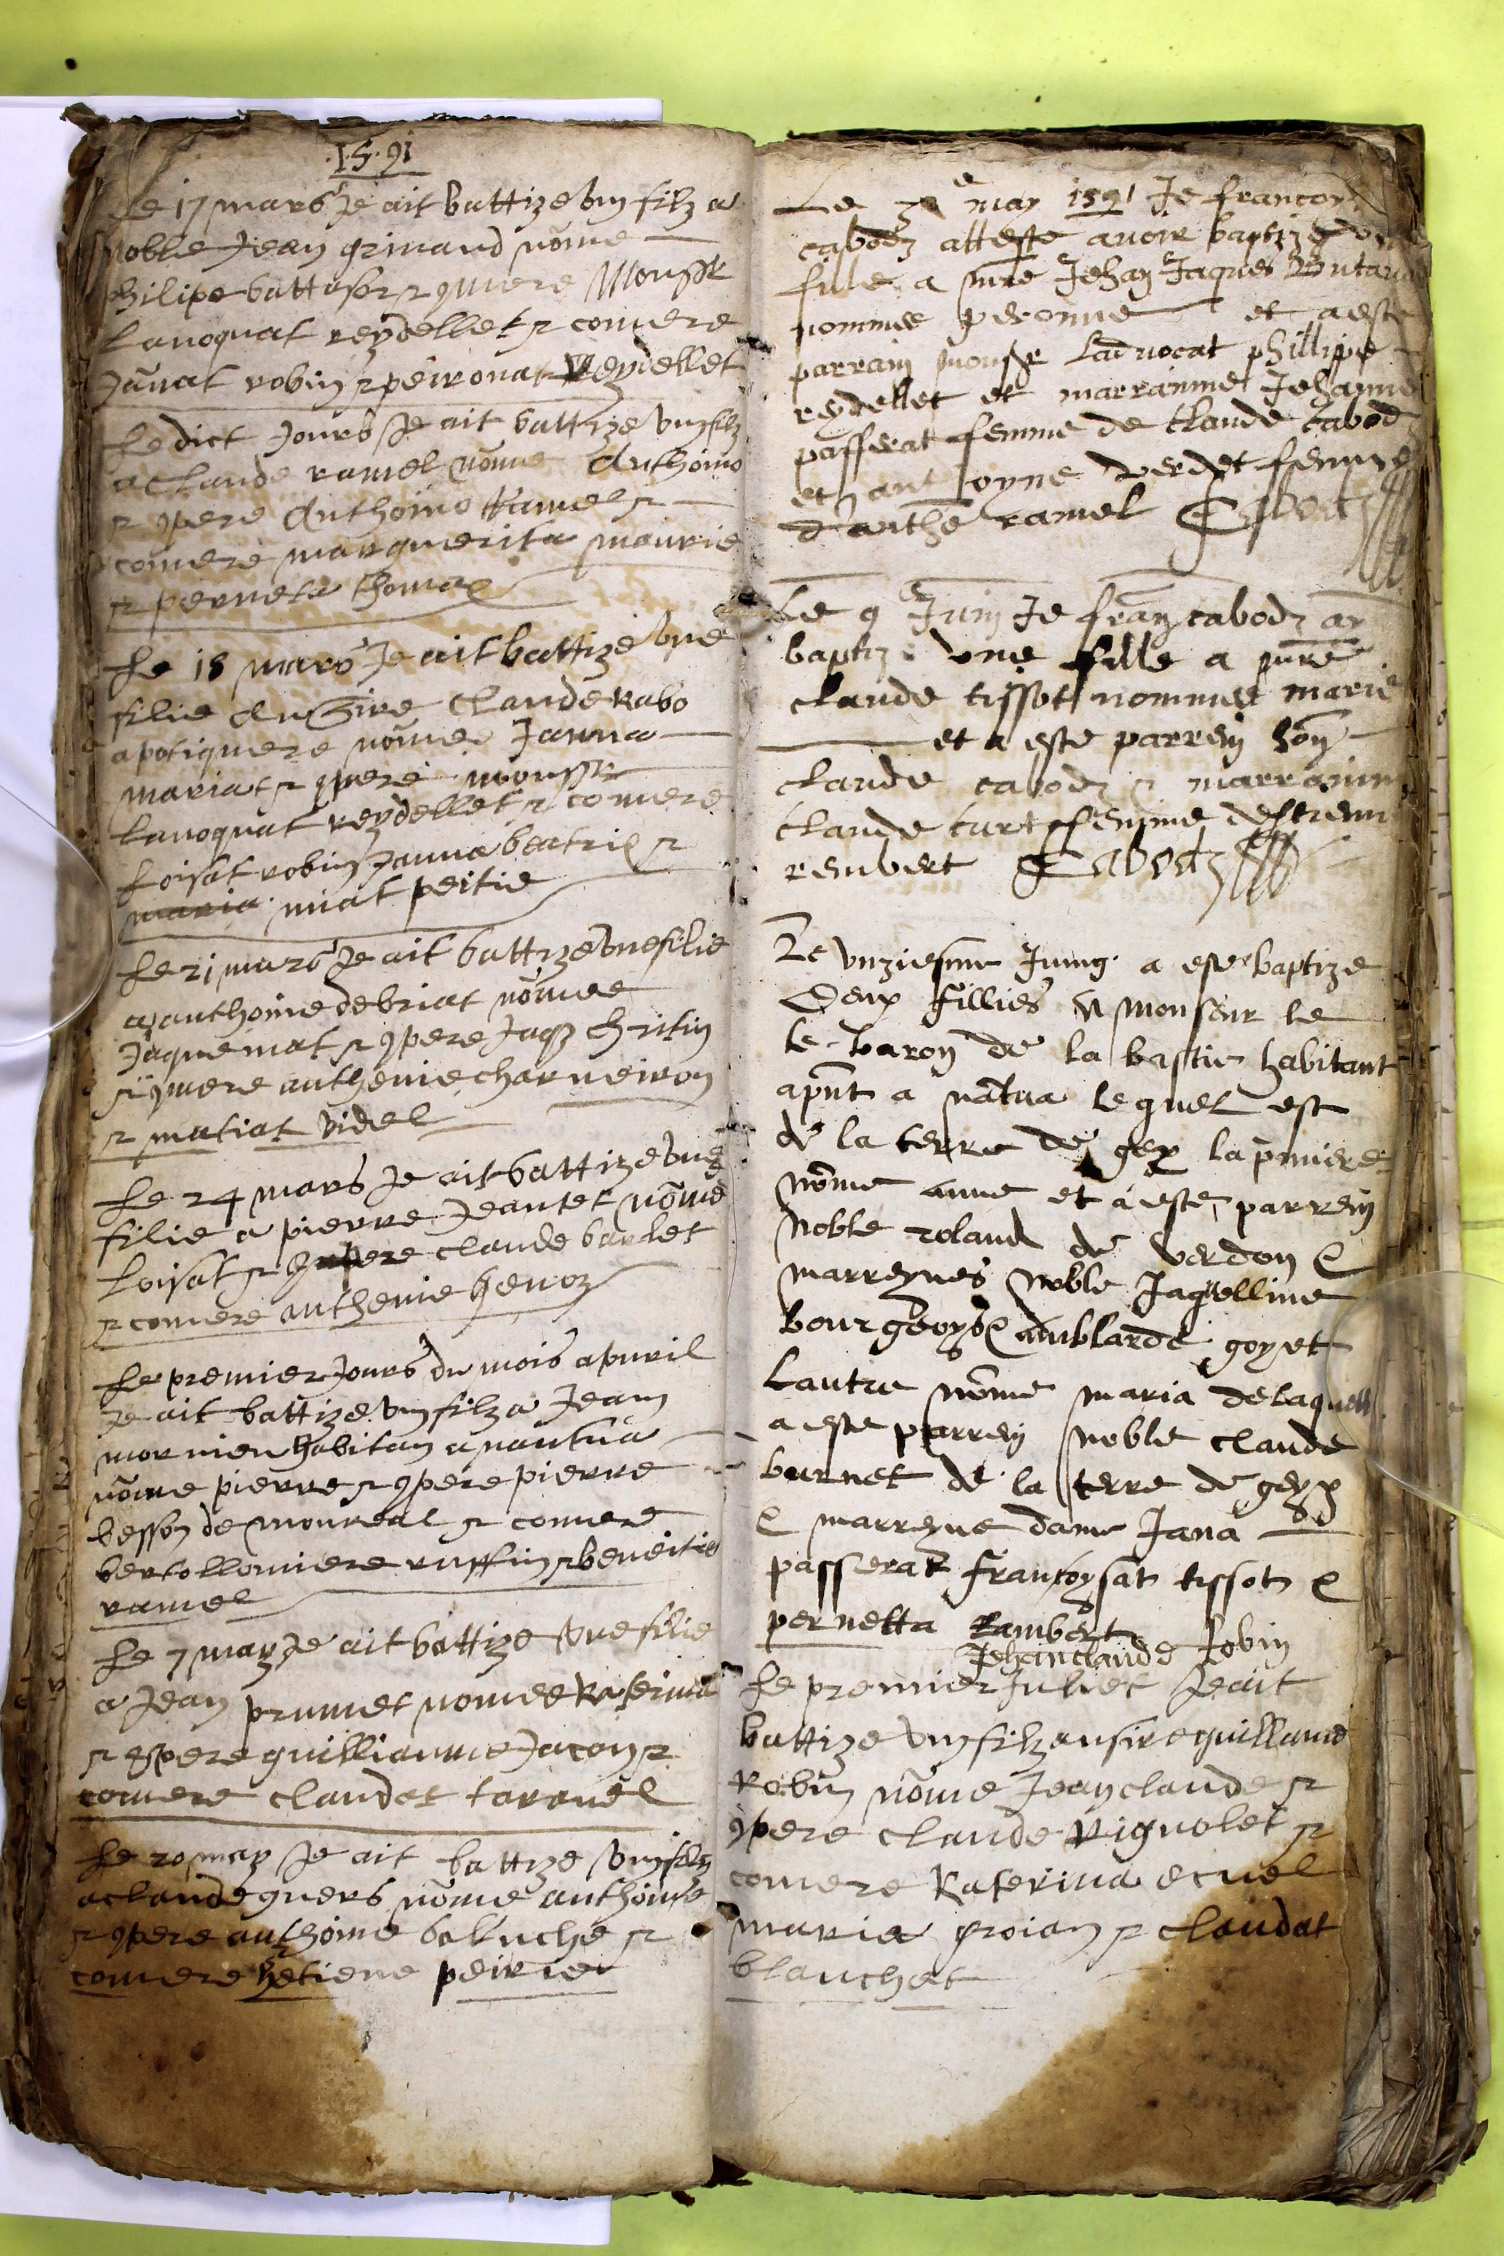 .1.5.91
Le 17 mars Je ait battize ung filz a
noble Jean grinaud nōme
philipe battesar et 9mere Monsr
lavoquat reydellet et comere
Janat robin et peironat Reydellet
Le dict Jours Je ait battize ung filz
a Claude ramel nōme Anthoino
et 9pere Anthoino Ramel et
comere marguerita maurie
et pernete thomas
Le 18 mars Je ait battize une
filie du Sire Claude Rabo
apotiquere nōmee Janna
mariat et 9pere monsr
lavoquat reydellet et comere
Loisat robin Janna beatrix et
maria miat peitie
Le 21 mars Je ait battize une filie
a anthoine debriat nōmee
Jaquemat et 9pere Jaqz chritin
et 9mere anthenie charveiron
et matiat videl
Le 24 mars Je ait battize une
filie a pierre Jeantet nōmee
Loisat et 9pere claude barlet
et comere anthenie genoz
Le premier Jours du mois apvril
Je ait battize ung filz a Jean
mornieu habitan a nantua
nōme pierre et 9pere pierre
besson de monreal et comere
bertollomiere ruffin et beneitie
ramel
Le 7 may Je ait battize une filie
a Jean prumet nomee Raterina
et 9pere guilliaume Jacon et
comere claudat taravel
Le 20 may Je ait battize ung filz
a claude guers nōme anthoine
et 9pere anthoine baluche et
comere hetiene peirier
Le may 1591 Je francoys
cabodz atteste avoir baptize
fille a mre Jehan Jaques Butavand
nommee peronne et a este
parrain monsr ladvocat phillipe
reydellet et marrainne Jehanne
passerat femme de Claude cabod
et anthoyne verdet femme
d'anthe ramel Cabodz
Le 9 Juin Je fran cabodz ay
baptiz une fille a mre
claude tissot nommee marie
et a este parrein hon
claude cabodz et marrainne
claude curt femme destienne
renbert Cabodz
Le unziesme Juing a este baptize
Deux fillies A monseur le
le baron de la bastie habitant
apnt a nātua lequel est
de la terre de gex la pmiere
nōme anne et a este parrein
noble roland de verdon &
marreynes noble Jaquelline
bourgeoys & amblarde goyet
Lautre nōme maria delaquelle
a este parrein noble claude
burnet de la terre de geyx
& marreyne dame Jana
passerat françoysat tissot &
pernetta Rambert
Jehanclaude Robin
Le premier Juliet Je ait
battize ung filz au sire guillaume
Robin nōme Jean claude et
9pere claude Vignolet et
comere Raterina ecuel
maria proian et claudat
blanchet